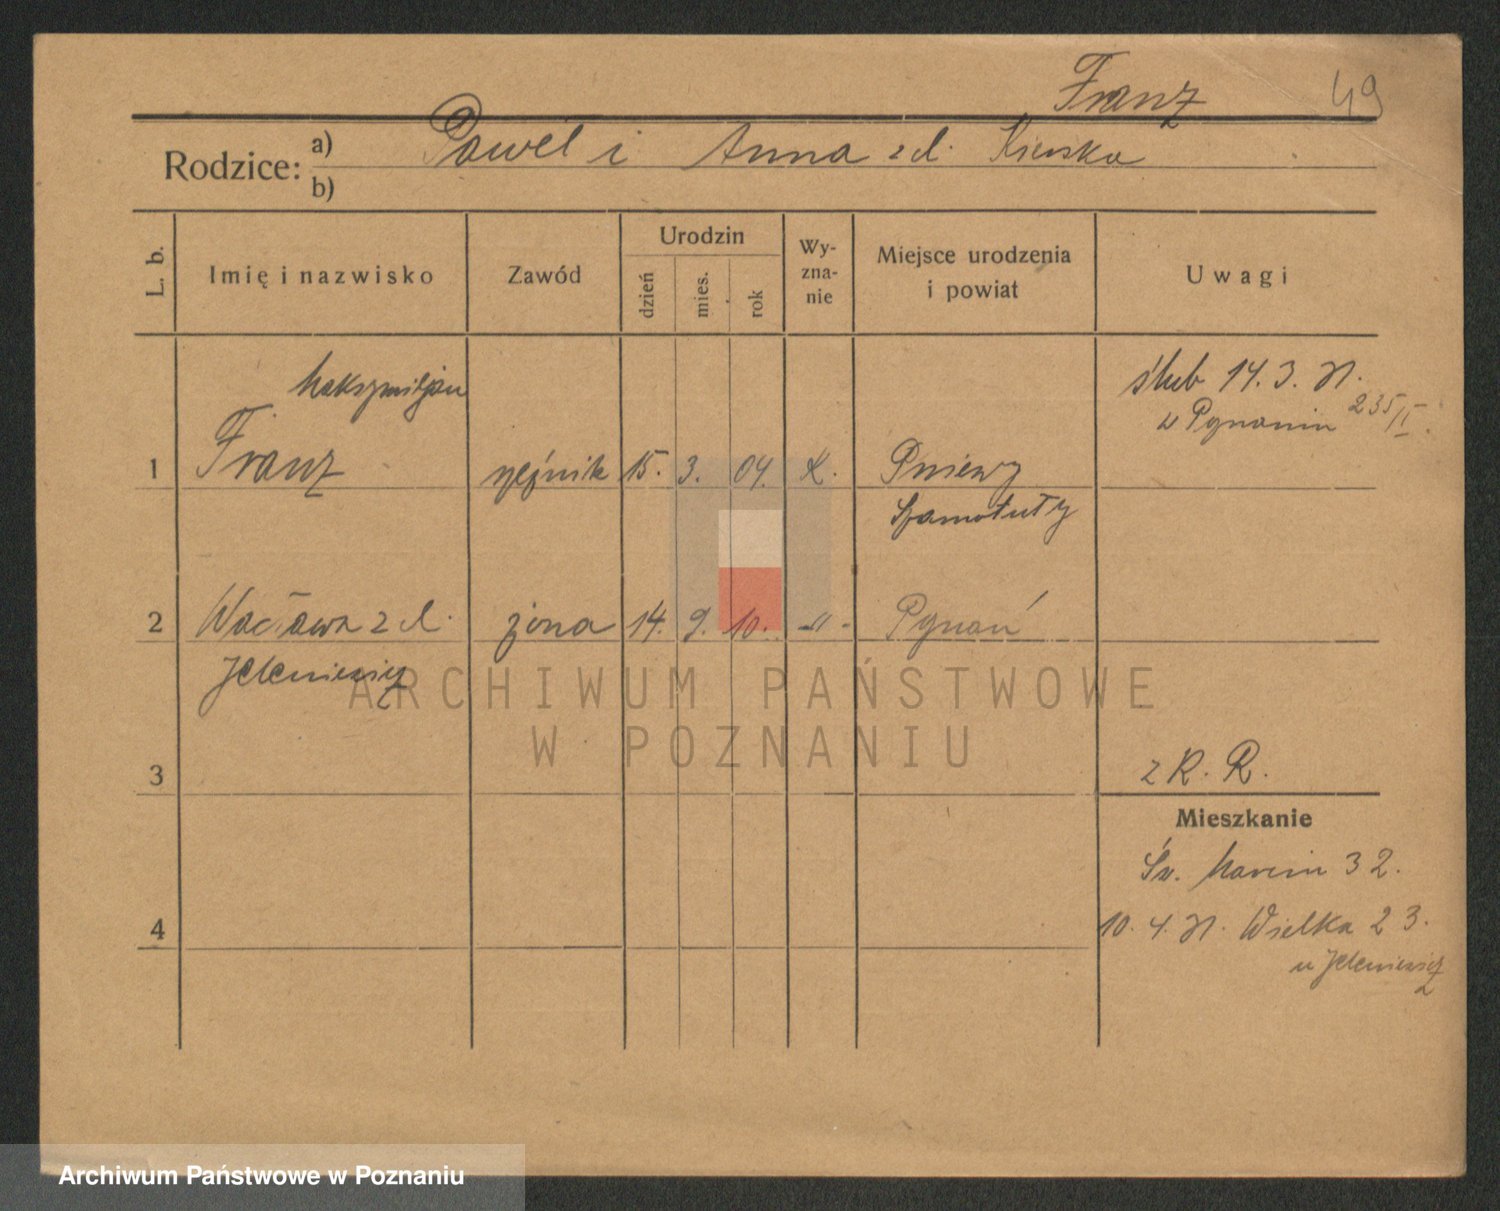 Franz 49
Rodzice: a) Paweł i Anna z d.
b)
L. b. Imię i nazwisko Zawód Urodzin dzień mies. rok Wy-zna-nie Miejsce urodzenia i powiat Uwagi
Maksymiljan ślub 14. 3. 31.
w Poznaniu 235/II.
1 Franz rzeźnik 15. 3. 04. K. Pniewy
Szamotuły
2 Wacława z d. żona 14. 9. 10. -"- Poznań
Jeleniewicz
3 z K. R.
Mieszkanie
Św. Marcin 32.
4 10. 4. 31. Wielka 23.
u Jeleniewicz
ARCHIWUM PAŃSTWOWE
W POZNANIU
Archiwum Państwowe w Poznaniu